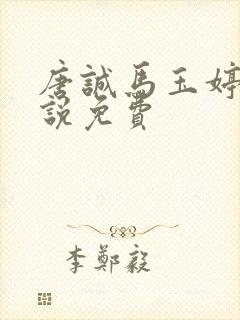 唐誠馬玉婷
說免費
李鄭毅